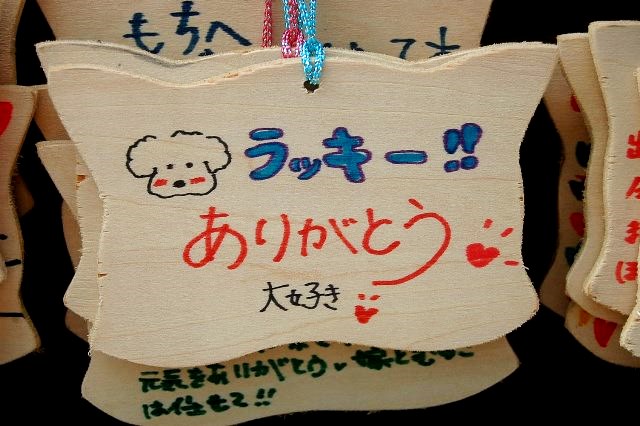 もちへ
ラッキー!!
ありがとう
大好き
元気をありがとう
は任せて!!